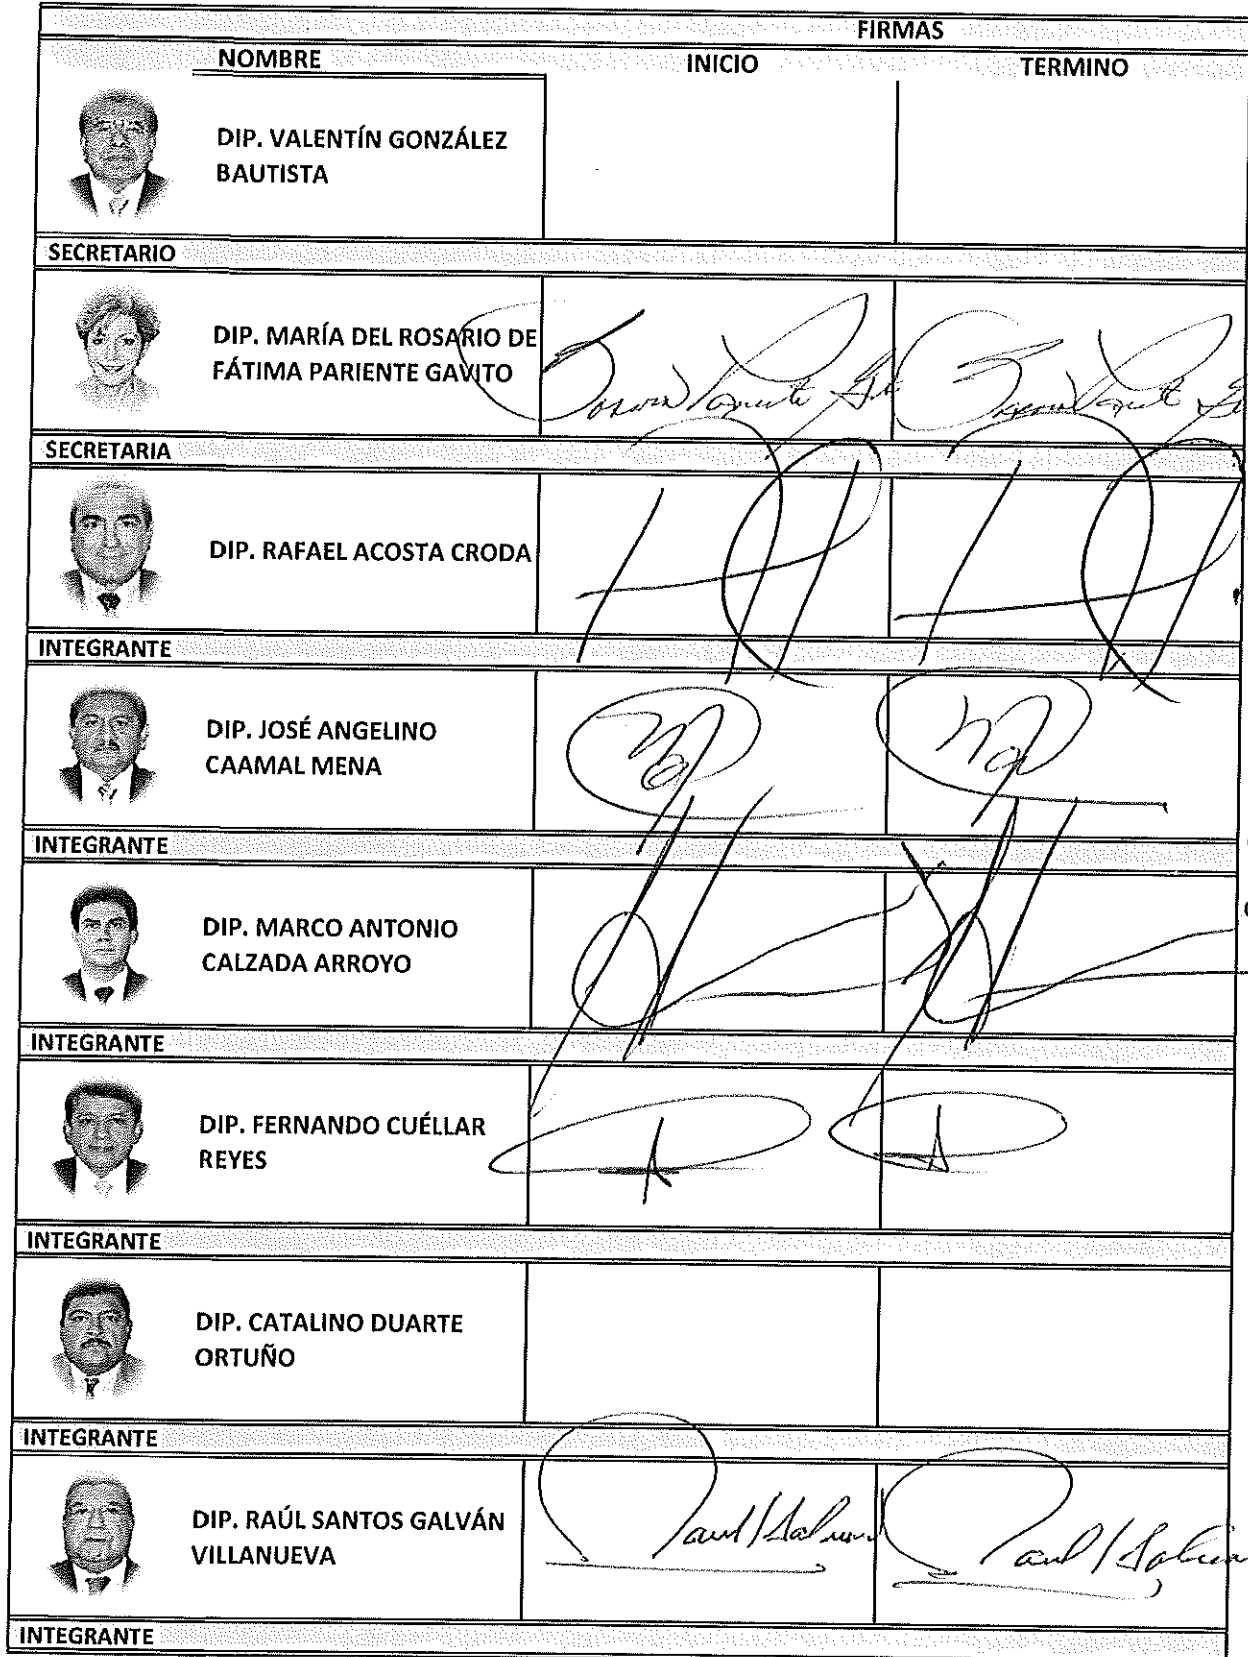 FIRMAS
NOMBRE INICIO TERMINO
DIP. VALENTÍN GONZÁLEZ
BAUTISTA
SECRETARIO
DIP. MARÍA DEL ROSARIO DE
FÁTIMA PARIENTE GAVITO
SECRETARIA
DIP. RAFAEL ACOSTA CRODA
INTEGRANTE
DIP. JOSÉ ANGELINO
CAAMAL MENA
INTEGRANTE
DIP. MARCO ANTONIO
CALZADA ARROYO
INTEGRANTE
DIP. FERNANDO CUÉLLAR
REYES
INTEGRANTE
DIP. CATALINO DUARTE
ORTUÑO
INTEGRANTE
DIP. RAÚL SANTOS GALVÁN
VILLANUEVA
INTEGRANTE